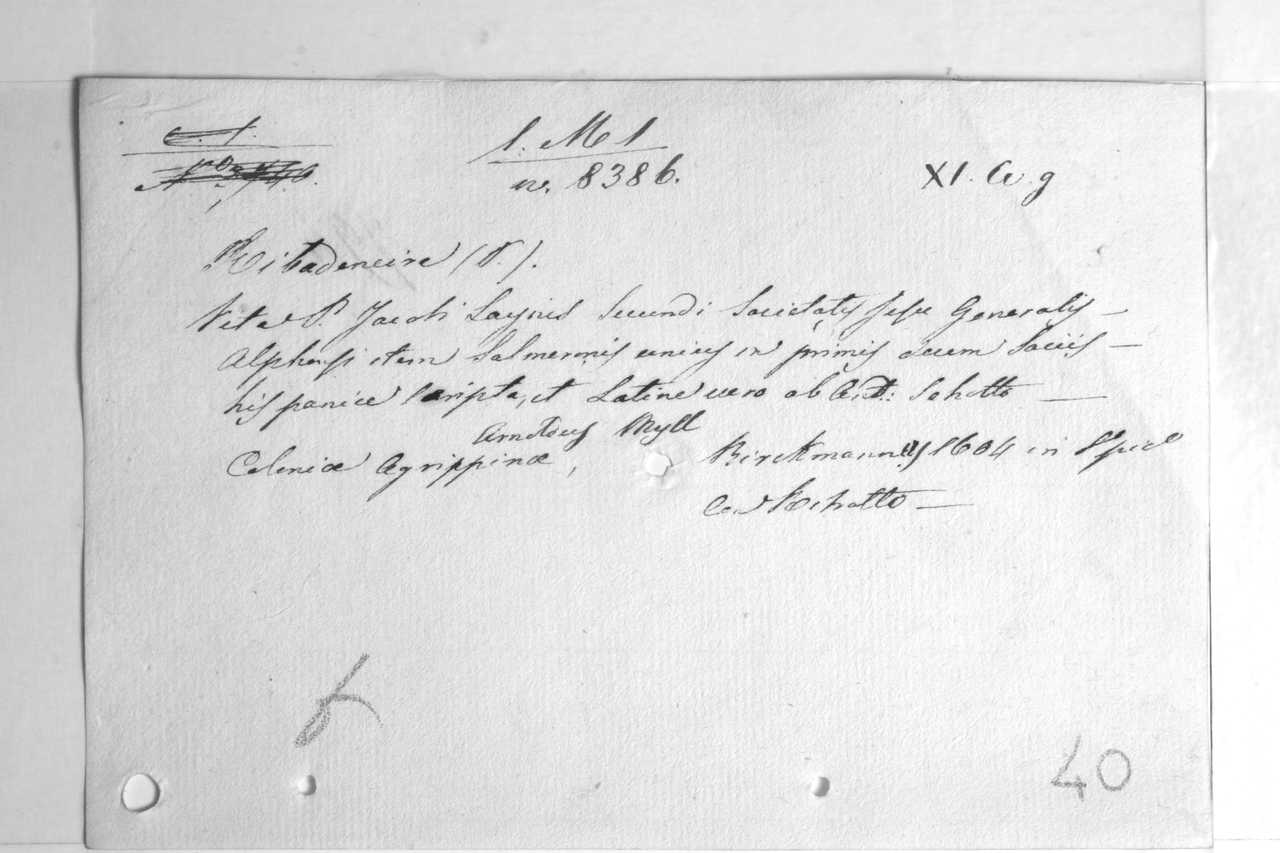 l. M l
nr. 8386.
XI. A. g
Ribadeneira (P.).
Vita P. Jacobi Laynis Secundi Societatis Jesu Generalis —
Alphonsi item Salmeronis unius ex primis decem Sociis —
hispanice scripta, et Latine vero ab And: Schotto —
Arnoldus Myll
Coloniæ Agrippinæ, Birckmannus 1604 in
Schotto —
40